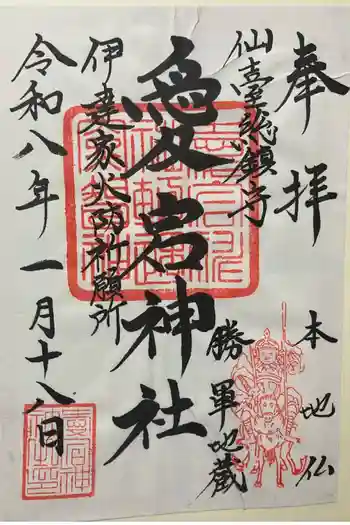 奉拝
本地仏
勝軍地蔵
仙臺総鎮守
愛宕神社
伊達家火防祈願所
令和八年一月十八日